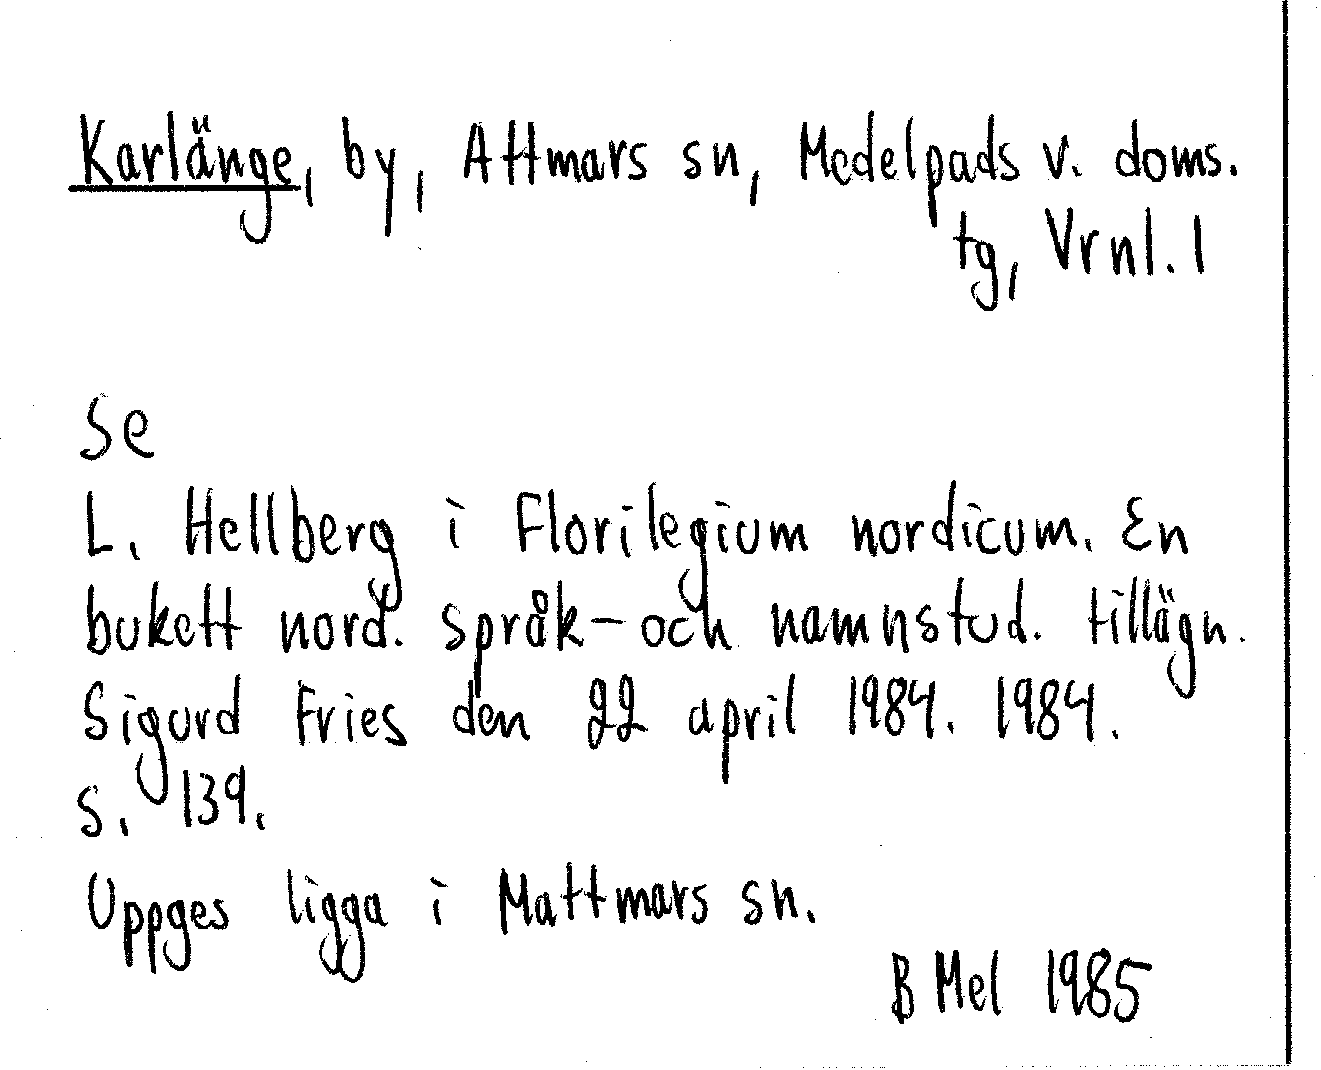 Karlänge, by, Attmars sn, Medelpads v. doms.
tg, Vrnl. l
Se
L. Hellberg i Florilegium nordicum. En
bukett nord. språk- och namnstud. tillägn.
Sigurd Fries den 22 april 1984. 1984.
s. 139.
Uppges ligga i Mattmars sn.
B Mel 1985